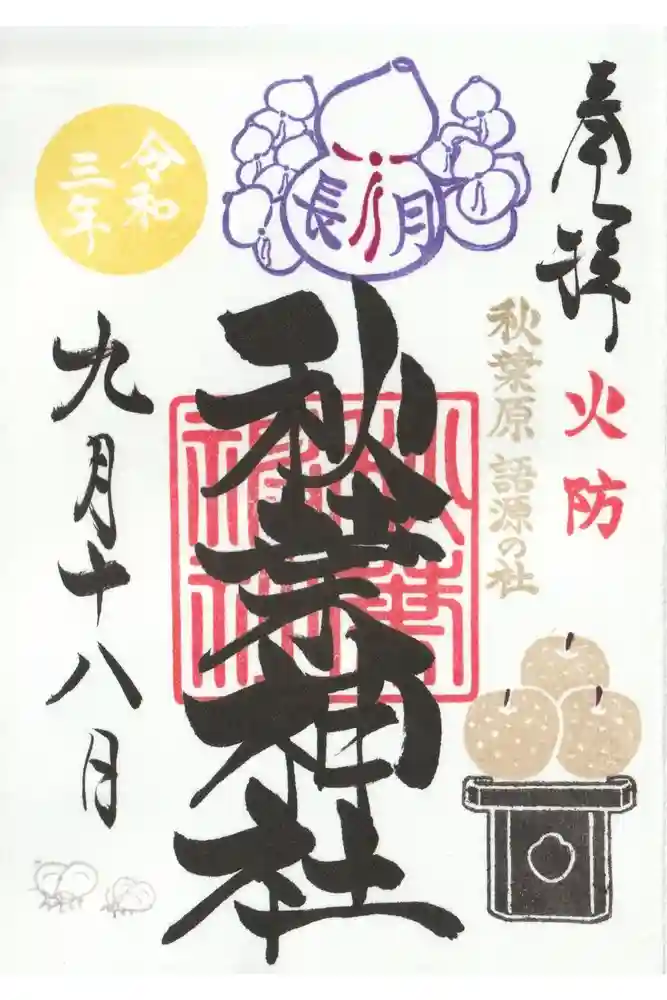 奉拝
火防
秋葉原 語源の社
長月
秋葉神社
秋葉
神社
令和
三年
九月十八日